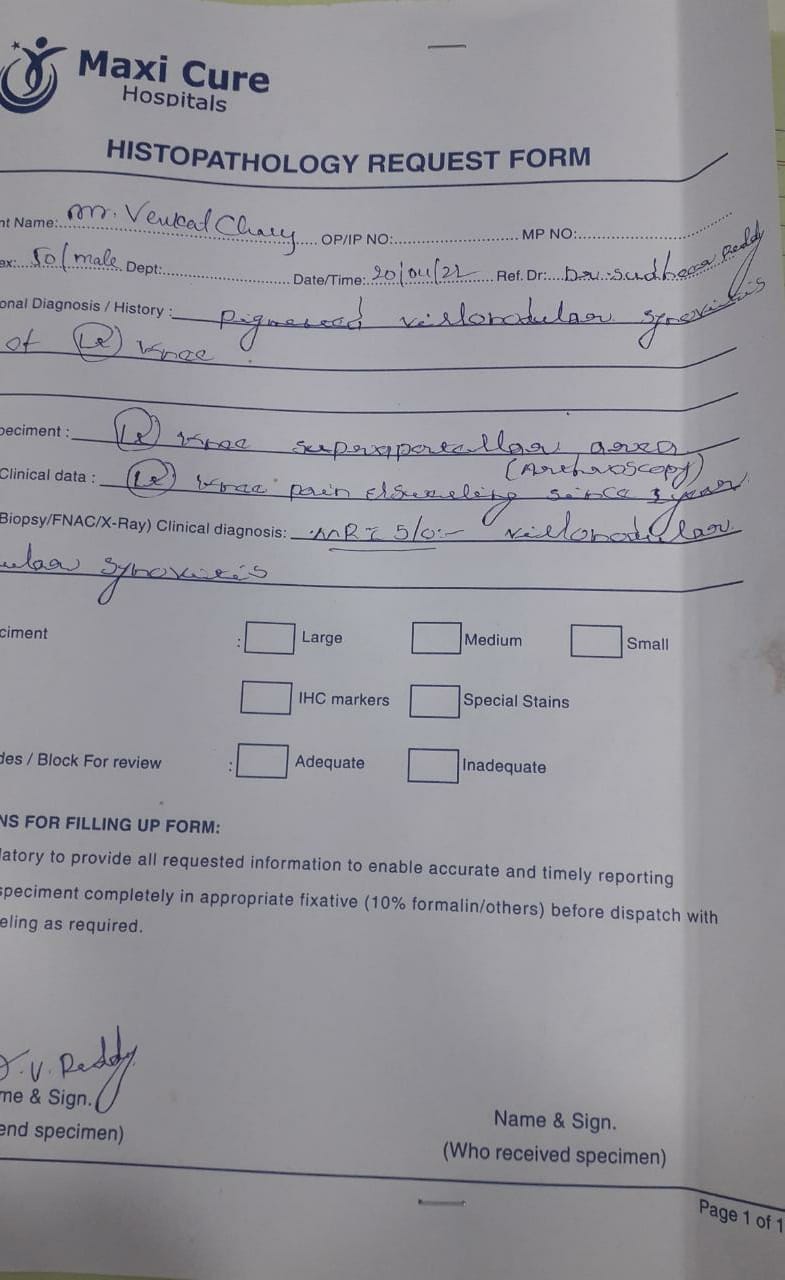 Maxi Cure
Hospitals
HISTOPATHOLOGY REQUEST FORM
nt Name: Mr. Venkat Chary OP/IP NO: MP NO:
ex: 50/male Dept: Date/Time: 20/04/22 Ref. Dr: Dr. Sudheer Reddy
onal Diagnosis / History : Pigmented villonodular synovitis
of (Lt) knee
peciment : (Lt) knee area
(Arthroscopy)
Clinical data : (Lt) knee pain & swelling since 3 year
Biopsy/FNAC/X-Ray) Clinical diagnosis: MRI S/o:- villonodular
ular synovitis
ciment : Large Medium Small
IHC markers Special Stains
des / Block For review : Adequate Inadequate
NS FOR FILLING UP FORM:
latory to provide all requested information to enable accurate and timely reporting
speciment completely in appropriate fixative (10% formalin/others) before dispatch with
eling as required.
V. Reddy
me & Sign.
end specimen)
Name & Sign.
(Who received specimen)
Page 1 of 1